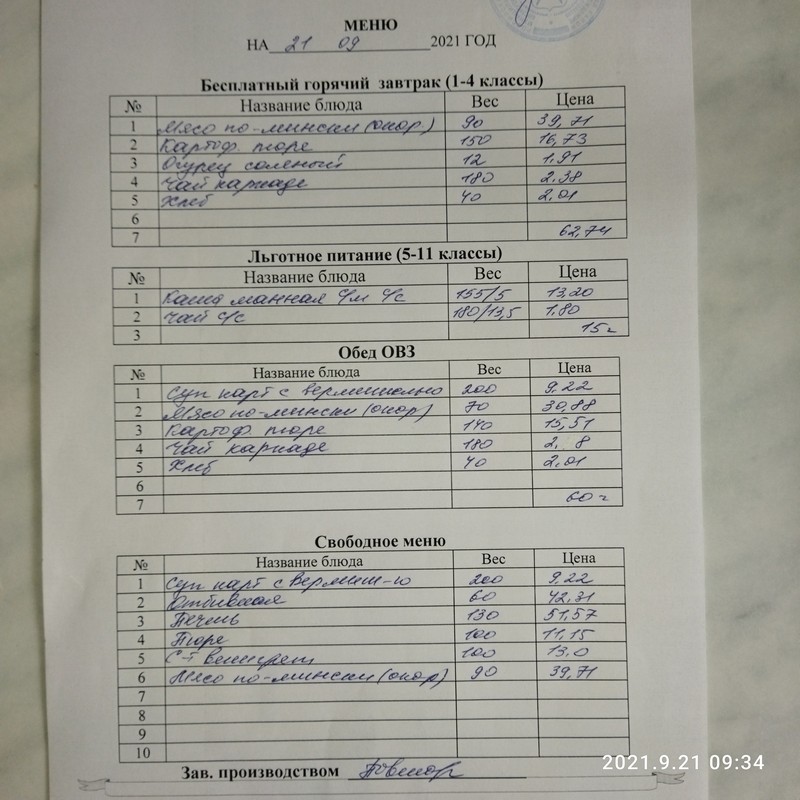 МЕНЮ
НА 21 09 2021 ГОД
Бесплатный горячий завтрак (1-4 классы)
№ Название блюда Вес Цена
1 Мясо по-мински (окор.) 90 39,71
2 Картоф. пюре 150 16,73
3 Огурец соленый 12 1,91
4 Чай каркаде 180 2,38
5 Хлеб 40 2,01
6
7 62,74
Льготное питание (5-11 классы)
№ Название блюда Вес Цена
1 Каша манная с/м с/с 155/5 13,20
2 Чай с/с 180/13,5 1,80
3 15=
Обед ОВЗ
№ Название блюда Вес Цена
1 Суп карт с вермишелью 200 9,22
2 Мясо по-мински (окор) 70 30,88
3 Картоф. пюре 140 15,51
4 Чай каркаде 180 2, 8
5 Хлеб 40 2,01
6
7 60=
Свободное меню
№ Название блюда Вес Цена
1 Суп карт с вермиш-ю 200 9,22
2 Отбивная 60 42,31
3 Печень 130 51,57
4 Пюре 100 11,15
5 С-т винегрет 100 13,0
6 Мясо по-мински (окор) 90 39,71
7
8
9
10
Зав. производством
2021.9.21 09:34